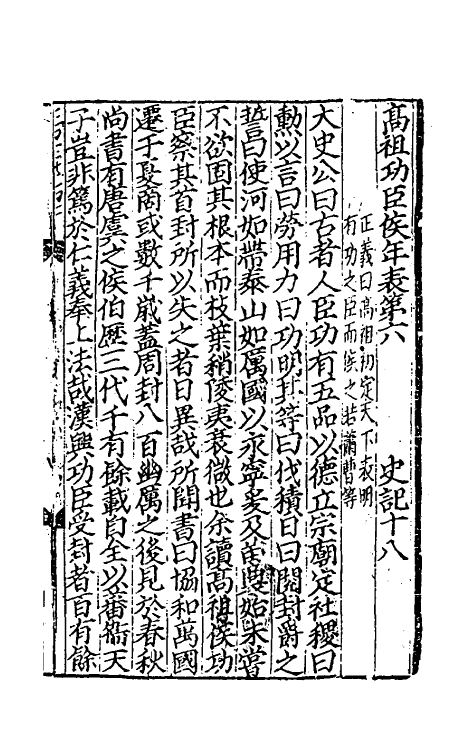 高祖功臣侯年表第六 史記十八
正義曰高祖初定天下表明
有功之臣而侯之若蕭曹等
太史公曰古者人臣功有五品以德立宗廟定社稷曰
勲以言曰勞用力曰功明其等曰伐積日曰閱封爵之
誓曰使河如帶泰山如厲國以永寧爰及苗裔始未嘗
不欲固其根本而枝葉稍陵夷衰微也余讀高祖侯功
臣察其首封所以失之者曰異哉所聞書曰協和萬國
遷于夏商或數千歲蓋周封八百幽厲之後見於春秋
尚書有唐虞之侯伯歷三代千有餘載自全以蕃衞天
子豈非篤於仁義奉上法哉漢興功臣受封者百有餘